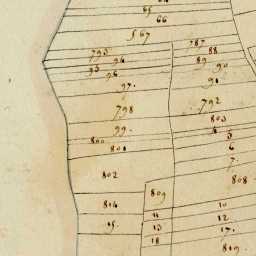 65
66
567
787
793 88
94 89 90
95
96
97. 91
798 792
803
99. 4
800 5
801 6
7.
802 808
809
814 10
11 12
15. 13 17.
18 819.